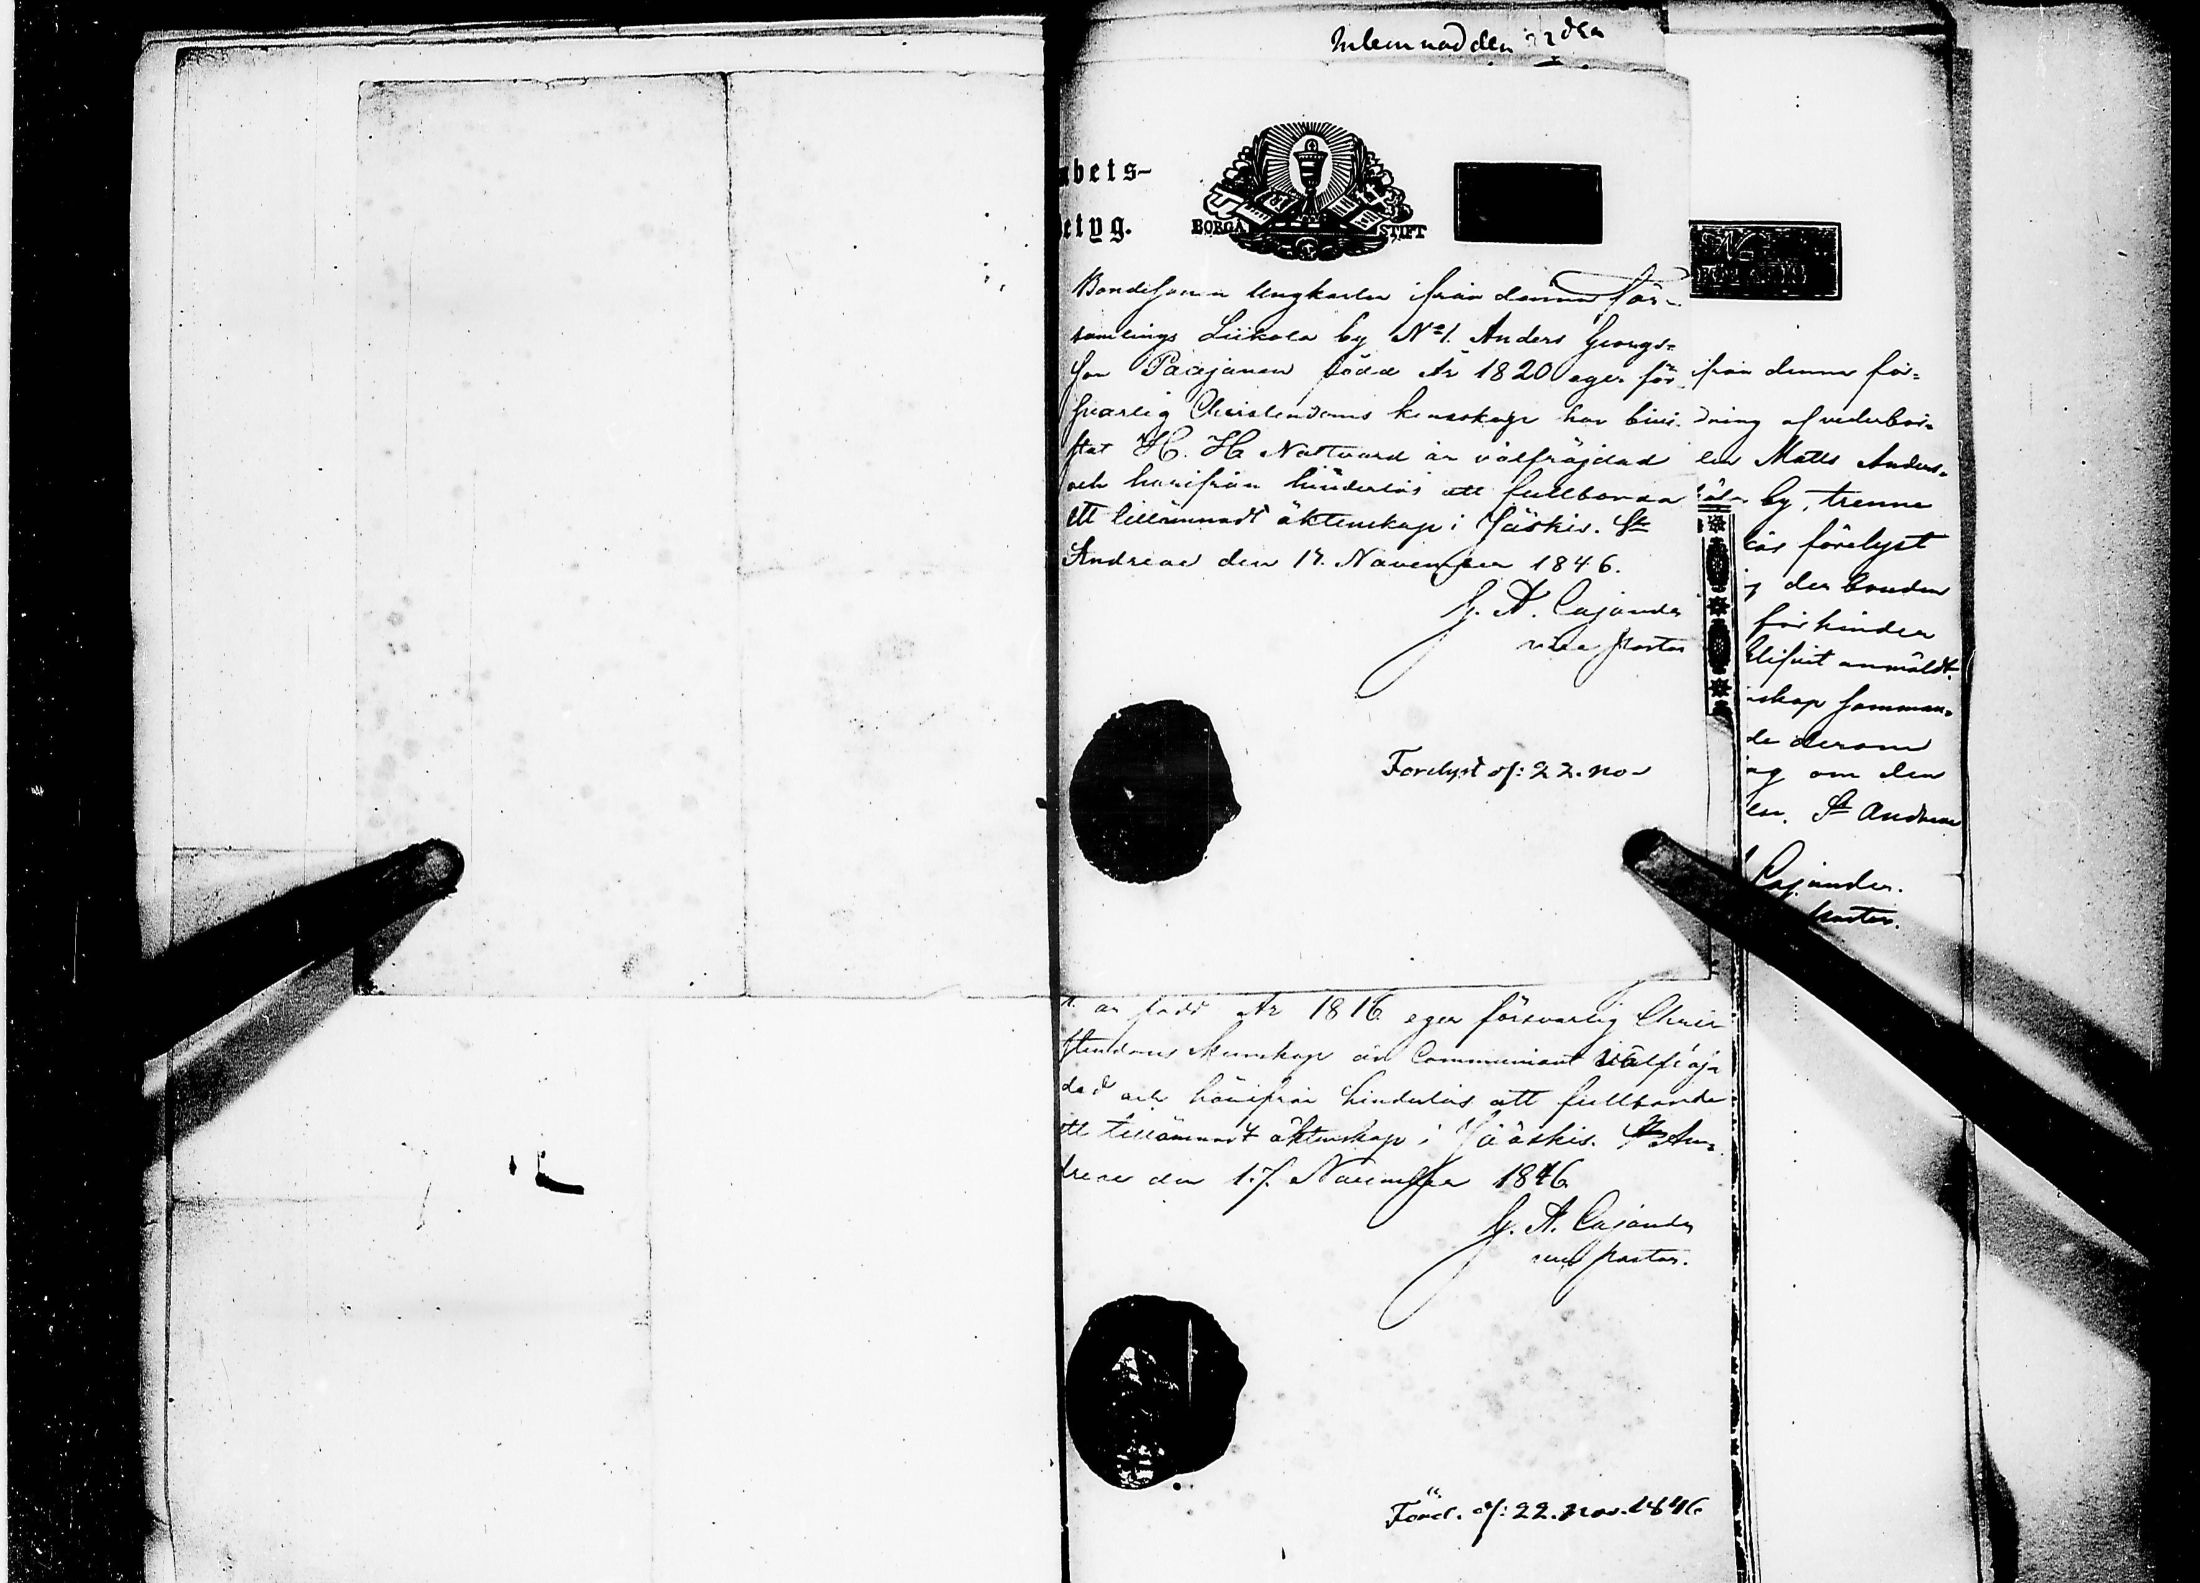 Inlemnad den
abets-
etyg.
BORGÅ STIFT
Bondesonen Ungkarlen ifrån denna för-
samlings Liikola by No 1. Anders Georgs-
son Paajanen född År 1820 eger för-
svarlig Christendoms kunskap har bivi-
stat H. H. Nattvard är välfräjdad
och härifrån hinderlös att fullborda
ett tillämnadt äktenskap i Jäskis. St
Andreae den 17. November 1846.
G. A. Cajander
vice pastor
Forelyst 1/: 22. nov
ifrån denna för-
dning af vederbör-
en Matts Anders-
by, trenne
förelyst
der bonden
förhinder
blifvit anmäldt.
nskap samman-
de derom
ng om den
en. St Andreae
Cajander.
pastor.
är född År 1816 eger försvarlig Chri-
stendoms kunskap är Communicant välfräj-
dad och härifrån hinderlös att fullborda
ett tillämnadt äktenskap i Jääskis. St An-
dreae den 17. November 1846
G. A. Cajander
vice pastor.
Förel. 1/: 22. nov. 1846